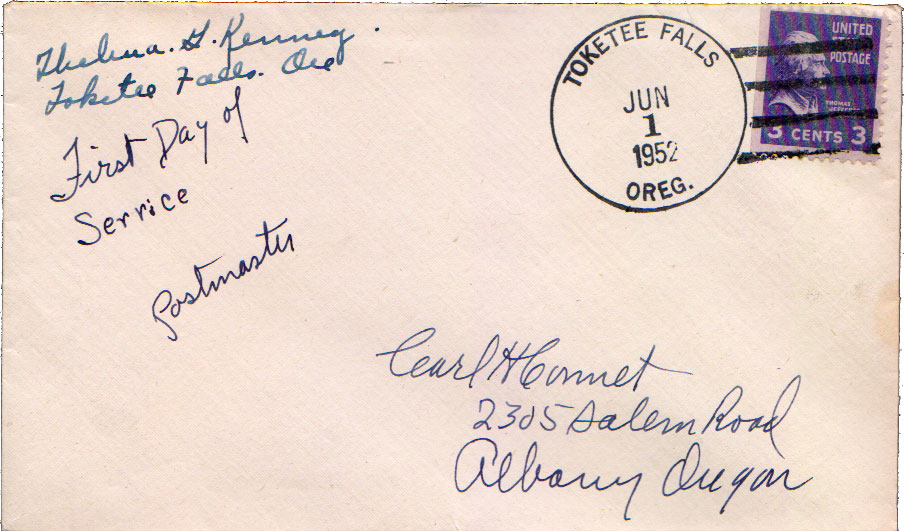 Thelma. G. Kenney.
Toketee Falls. Ore
First Day of
Service
Postmaster
TOKETEE FALLS
JUN
1
1952
OREG.
UNITED
POSTAGE
THOMAS
JEFFERSON
3 CENTS 3
Carl H Connet
2305 Salem Road
Albany Oregon